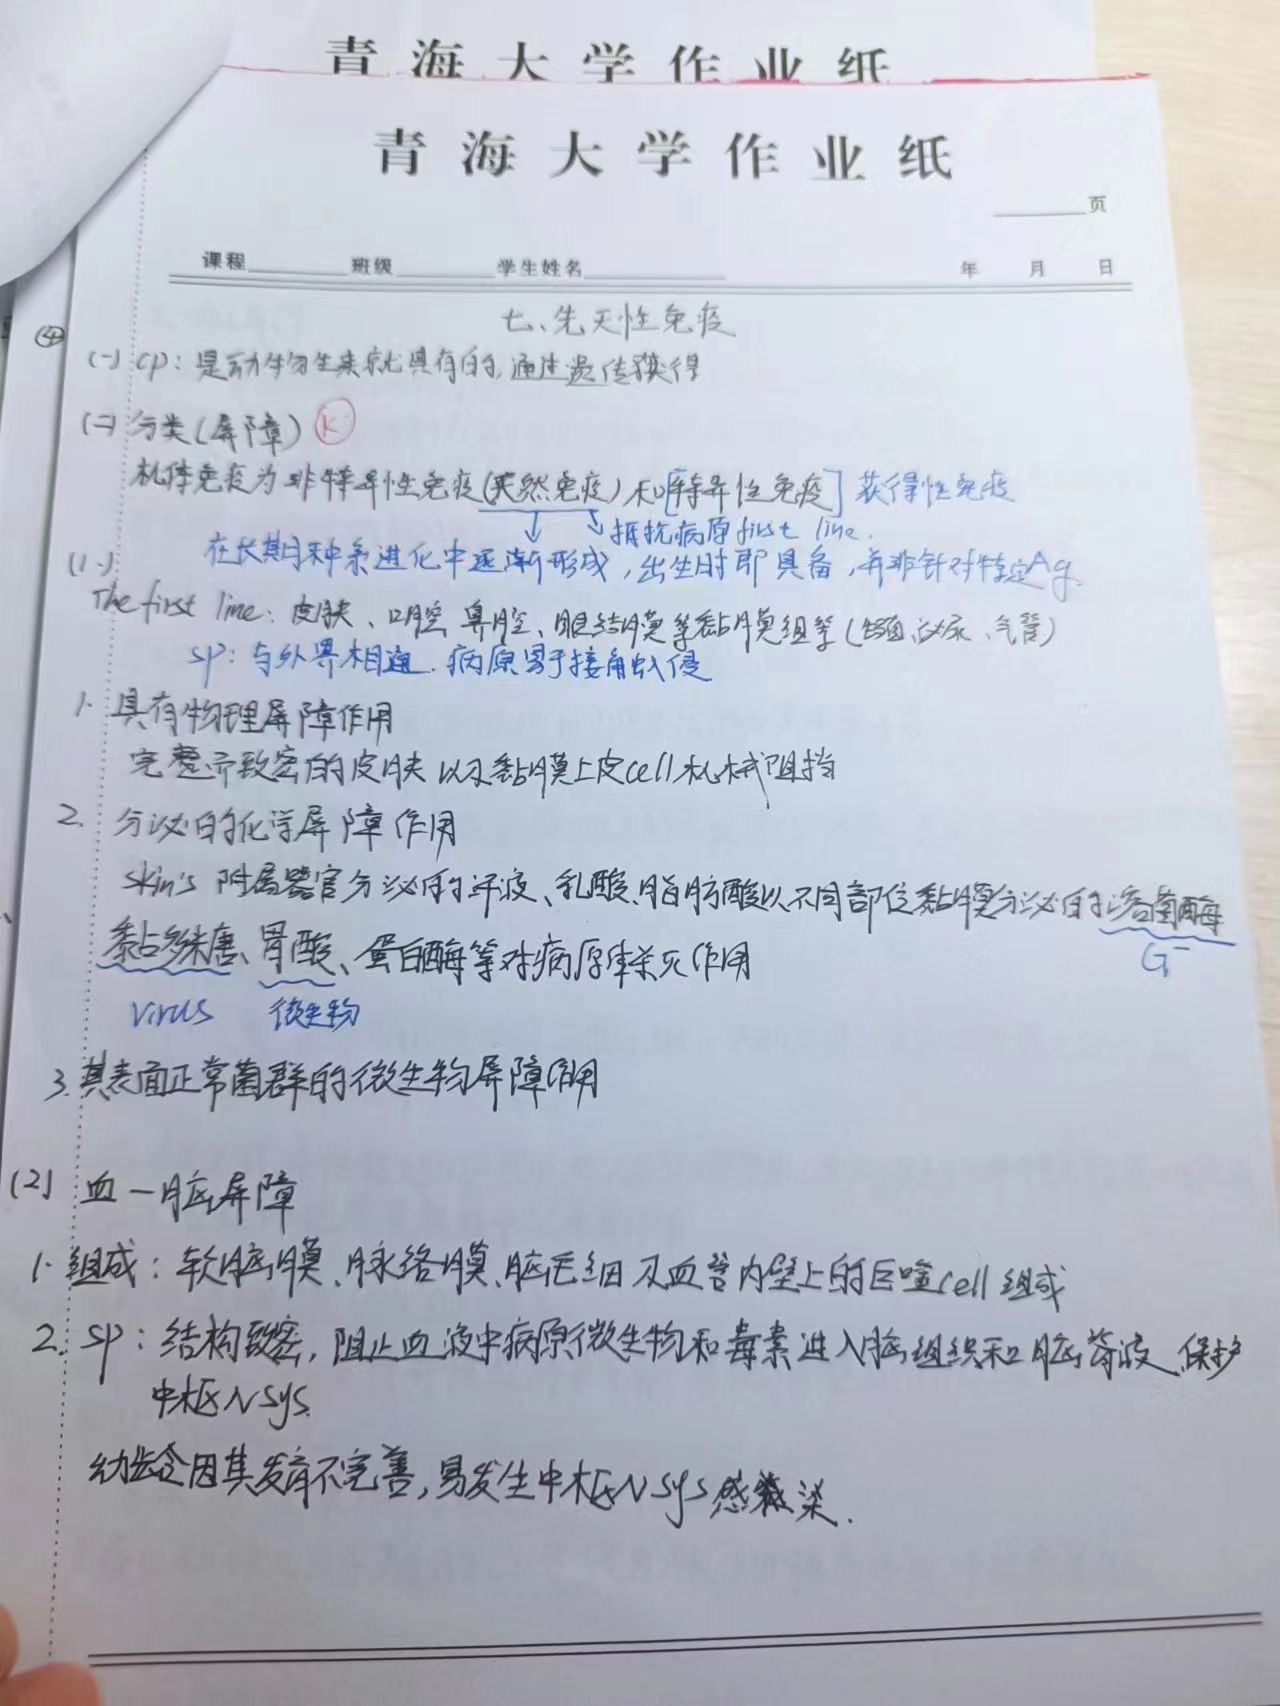 青海大学作业纸
青海大学作业纸
页
课程 班级 学生姓名 年 月 日
④
七、先天性免疫
(一) cp：是动物生来就具有的，通过遗传获得
(二) 分类(屏障) K
机体免疫为非特异性免疫(天然免疫)和[特异性免疫] 获得性免疫
抵抗病原first line.
在长期种系进化中逐渐形成，出生时即具备，并非针对特定Ag.
(1)
The first line：皮肤、口腔、鼻腔、眼结膜等黏膜组 (、泌尿、气管)
sp：与外界相通，病原易于接触入侵
1. 具有物理屏障作用
完整而致密的皮肤以及黏膜上皮cell机械阻挡
2. 分泌的化学屏障作用
skin's 附属器官分泌的汗液、乳酸、脂肪酸以不同部位黏膜分泌的溶菌酶
G⁻
黏多糖、胃酸、蛋白酶等对病原体杀灭作用
virus 微生物
3. 其表面正常菌群的微生物屏障作用
(2) 血一脑屏障
1. 组成：软脑膜、脉络膜、脑毛细及血管内壁上的巨噬cell组成
2. sp：结构致密，阻止血液中病原微生物和毒素进入脑组织和脑脊液，保护
中枢N sys.
幼龄因其发育不完善，易发生中枢N sys感染.